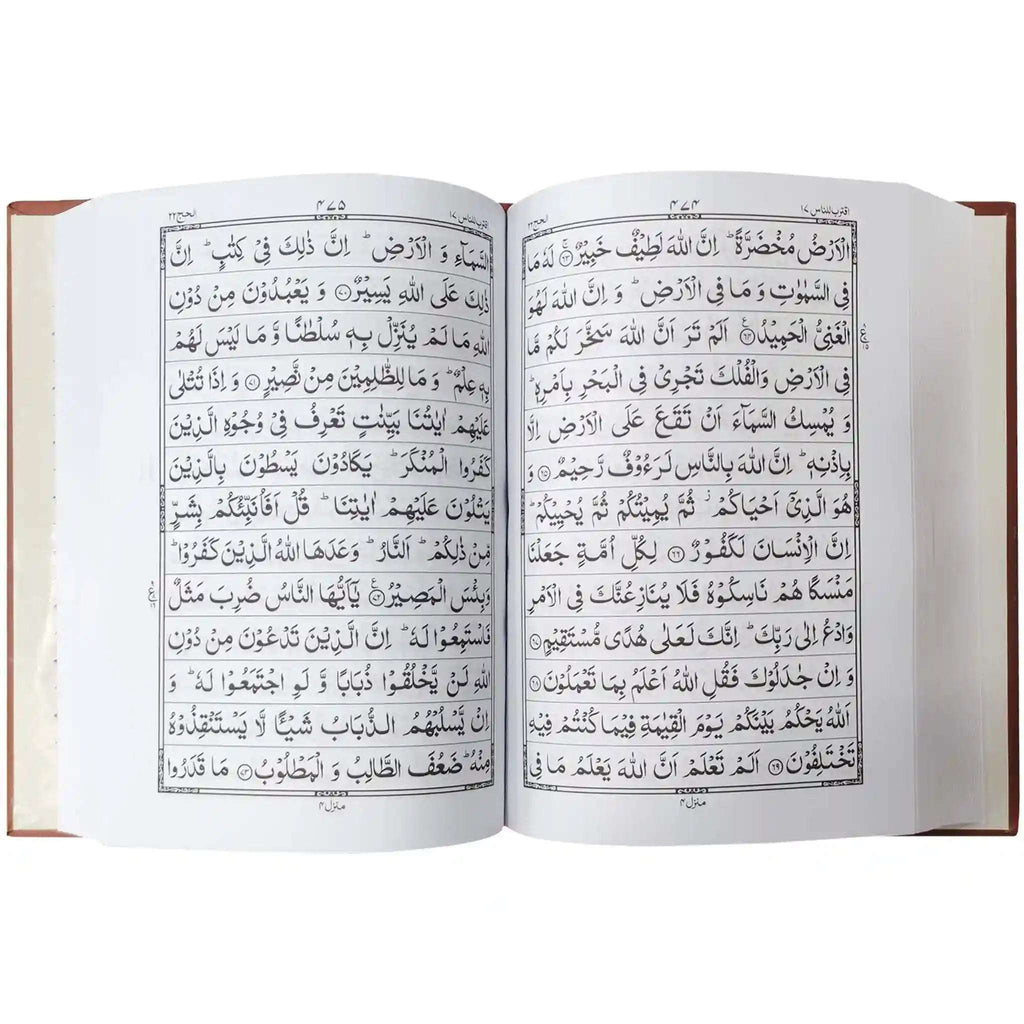 اقترب للناس ١٧
۴۷۴
الحج ٢٢
الْاَرْضُ مُخْضَرَّةً ؕ اِنَّ اللّٰهَ لَطِيْفٌ خَبِيْرٌ ﴿۶۳﴾ۚ لَهٗ مَا
فِي السَّمٰوٰتِ وَ مَا فِي الْاَرْضِ ؕ وَ اِنَّ اللّٰهَ لَهُوَ
الْغَنِيُّ الْحَمِيْدُ ﴿۶۴﴾ اَلَمْ تَرَ اَنَّ اللّٰهَ سَخَّرَ لَكُمْ مَّا
فِي الْاَرْضِ وَالْفُلْكَ تَجْرِيْ فِي الْبَحْرِ بِاَمْرِهٖ ؕ
وَ يُمْسِكُ السَّمَآءَ اَنْ تَقَعَ عَلَى الْاَرْضِ اِلَّا
بِاِذْنِهٖ ؕ اِنَّ اللّٰهَ بِالنَّاسِ لَرَءُوْفٌ رَّحِيْمٌ ﴿۶۵﴾
هُوَ الَّذِيْۤ اَحْيَاكُمْ ؗ ثُمَّ يُمِيْتُكُمْ ثُمَّ يُحْيِيْكُمْ ؕ
اِنَّ الْاِنْسَانَ لَكَفُوْرٌ ﴿۶۶﴾ لِكُلِّ اُمَّةٍ جَعَلْنَا
مَنْسَكًا هُمْ نَاسِكُوْهُ فَلَا يُنَازِعُنَّكَ فِي الْاَمْرِ
وَادْعُ اِلٰى رَبِّكَ ؕ اِنَّكَ لَعَلٰى هُدًى مُّسْتَقِيْمٍ ﴿۶۷﴾
وَ اِنْ جٰدَلُوْكَ فَقُلِ اللّٰهُ اَعْلَمُ بِمَا تَعْمَلُوْنَ ﴿۶۸﴾
اَللّٰهُ يَحْكُمُ بَيْنَكُمْ يَوْمَ الْقِيٰمَةِ فِيْمَا كُنْتُمْ فِيْهِ
تَخْتَلِفُوْنَ ﴿۶۹﴾ اَلَمْ تَعْلَمْ اَنَّ اللّٰهَ يَعْلَمُ مَا فِي
منزل ۴
اقترب للناس ١٧
۴۷۵
الحج ٢٢
السَّمَآءِ وَ الْاَرْضِ ؕ اِنَّ ذٰلِكَ فِيْ كِتٰبٍ ؕ اِنَّ
ذٰلِكَ عَلَى اللّٰهِ يَسِيْرٌ ﴿۷۰﴾ وَ يَعْبُدُوْنَ مِنْ دُوْنِ
اللّٰهِ مَا لَمْ يُنَزِّلْ بِهٖ سُلْطٰنًا وَّ مَا لَيْسَ لَهُمْ
بِهٖ عِلْمٌ ؕ وَ مَا لِلظّٰلِمِيْنَ مِنْ نَّصِيْرٍ ﴿۷۱﴾ وَ اِذَا تُتْلٰى
عَلَيْهِمْ اٰيٰتُنَا بَيِّنٰتٍ تَعْرِفُ فِيْ وُجُوْهِ الَّذِيْنَ
كَفَرُوا الْمُنْكَرَ ؕ يَكَادُوْنَ يَسْطُوْنَ بِالَّذِيْنَ
يَتْلُوْنَ عَلَيْهِمْ اٰيٰتِنَا ؕ قُلْ اَفَاُنَبِّئُكُمْ بِشَرٍّ
مِّنْ ذٰلِكُمْ ؕ اَلنَّارُ ؕ وَعَدَهَا اللّٰهُ الَّذِيْنَ كَفَرُوْا ؕ
وَبِئْسَ الْمَصِيْرُ ﴿۷۲﴾ يٰۤاَيُّهَا النَّاسُ ضُرِبَ مَثَلٌ
فَاسْتَمِعُوْا لَهٗ ؕ اِنَّ الَّذِيْنَ تَدْعُوْنَ مِنْ دُوْنِ
اللّٰهِ لَنْ يَّخْلُقُوْا ذُبَابًا وَّ لَوِ اجْتَمَعُوْا لَهٗ ؕ وَ
اِنْ يَّسْلُبْهُمُ الذُّبَابُ شَيْـًٔا لَّا يَسْتَنْقِذُوْهُ
مِنْهُ ؕ ضَعُفَ الطَّالِبُ وَ الْمَطْلُوْبُ ﴿۷۳﴾ مَا قَدَرُوا
منزل ۴